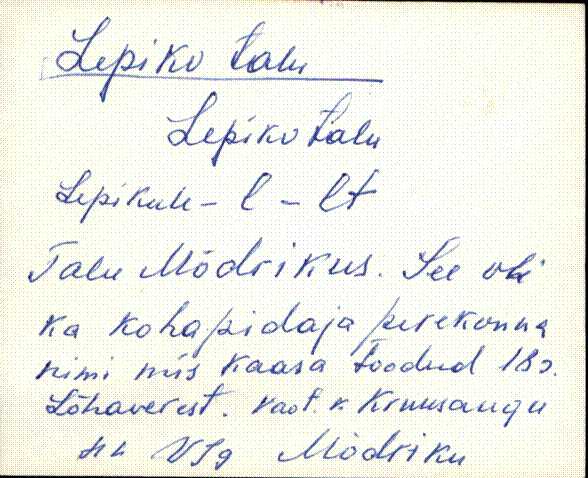 Lepiko talu
Lepiko talu
Lepikule - l - lt
Talu Mõdrikus. See oli
ka kohapidaja perekonna
nimi mis kaasa toodud 18
Lõhaverest. Kruusaugu
VJg Mõdriku